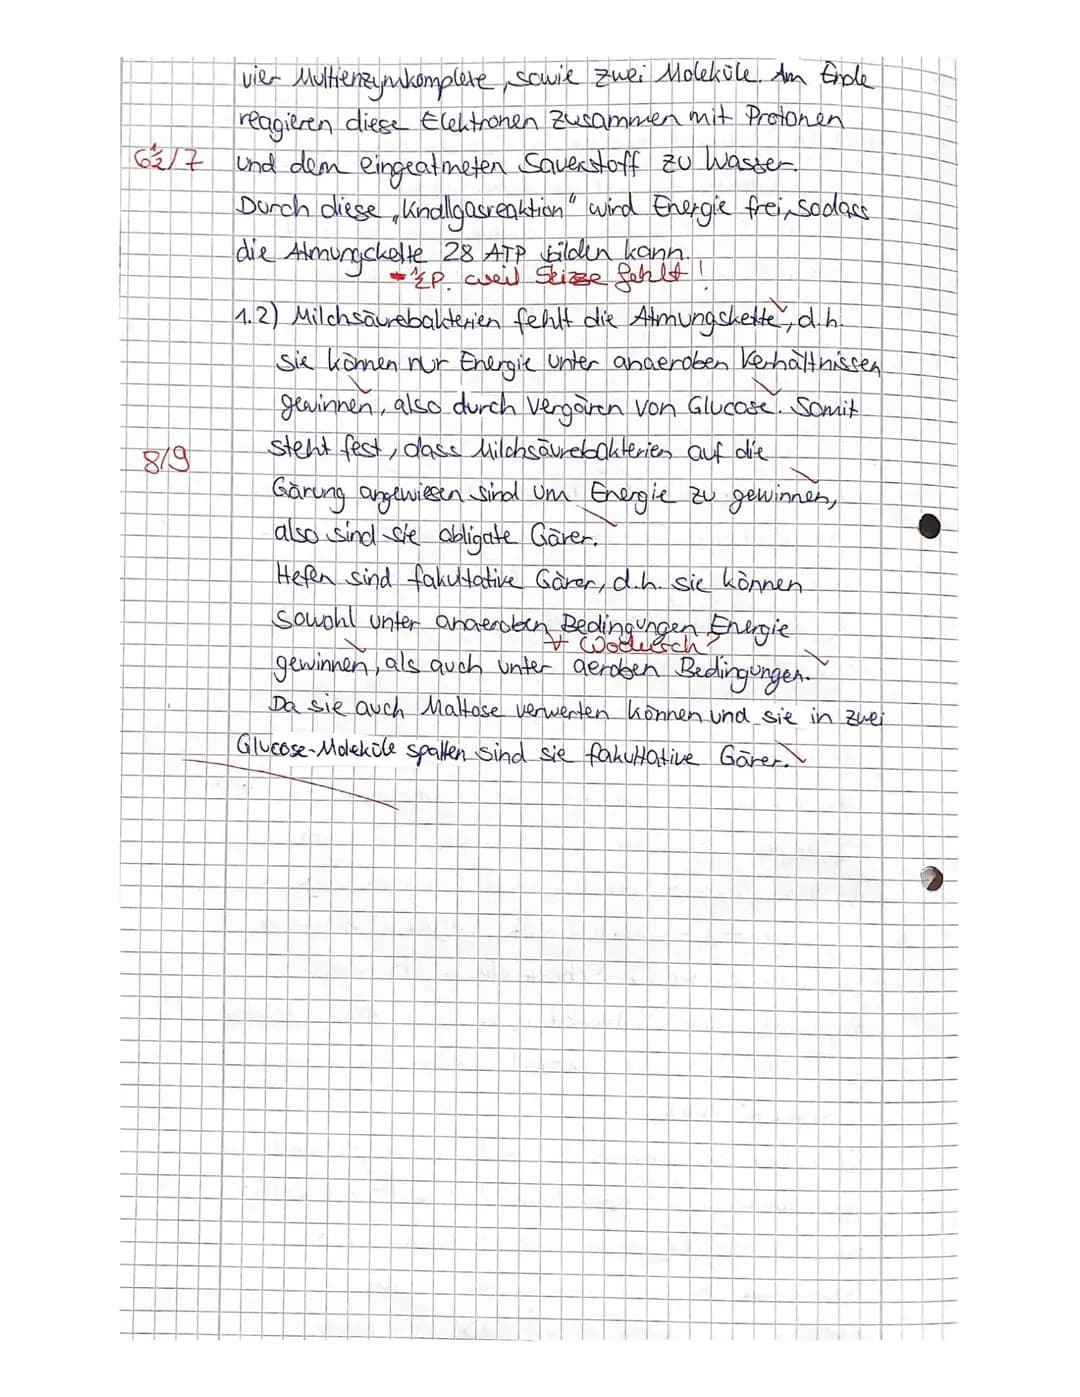 vier Multienzymkomplexe, sowie zwei Moleküle. Am Ende
reagieren diese Elektronen zusammen mit Protonen
6½/7 und dem eingeatmeten Sauerstoff zu Wasser.
Durch diese „Knallgasreaktion" wird Energie frei, sodass
die Atmungskette 28 ATP bilden kann.
-½P. weil Skizze fehlt!
1.2) Milchsäurebakterien fehlt die Atmungskette, d.h.
sie können nur Energie unter anaeroben Verhältnissen
gewinnen, also durch Vergären von Glucose. Somit
8/9 steht fest, dass Milchsäurebakterien auf die
Gärung angewiesen sind um Energie zu gewinnen,
also sind sie obligate Gärer.
Hefen sind fakultative Gärer, d.h. sie können
sowohl unter anaeroben Bedingungen Energie
gewinnen, als auch unter aeroben Bedingungen.
Da sie auch Maltose verwerten können und sie in zwei
Glucose-Moleküle spalten sind sie fakultative Gärer.